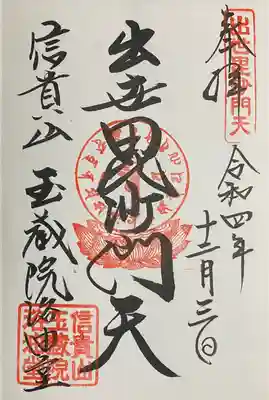 出世毘沙門天
奉拝
令和四年
十二月三日
出世毘沙門天
信貴山 玉蔵院浴油堂
信貴山
玉蔵院
浴油堂